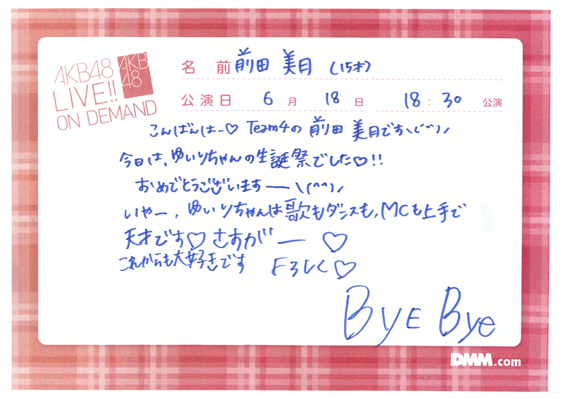 AKB48
LIVE!!
ON DEMAND
AKB
48
名 前 前田 美月 (15才)
公演日 6 月 18 日 18:30 公演
こんばんはー♡ Team4の前田美月です\(^^)/
今日は、ゆいりちゃんの生誕祭でした♡!!
おめでとうございますー\(^^)/
いやー, ゆいりちゃんは歌もダンスも, MCも上手で
天才です♡ さすがー ♡
これからも大好きです よろしく♡
BYE Bye
DMM.com